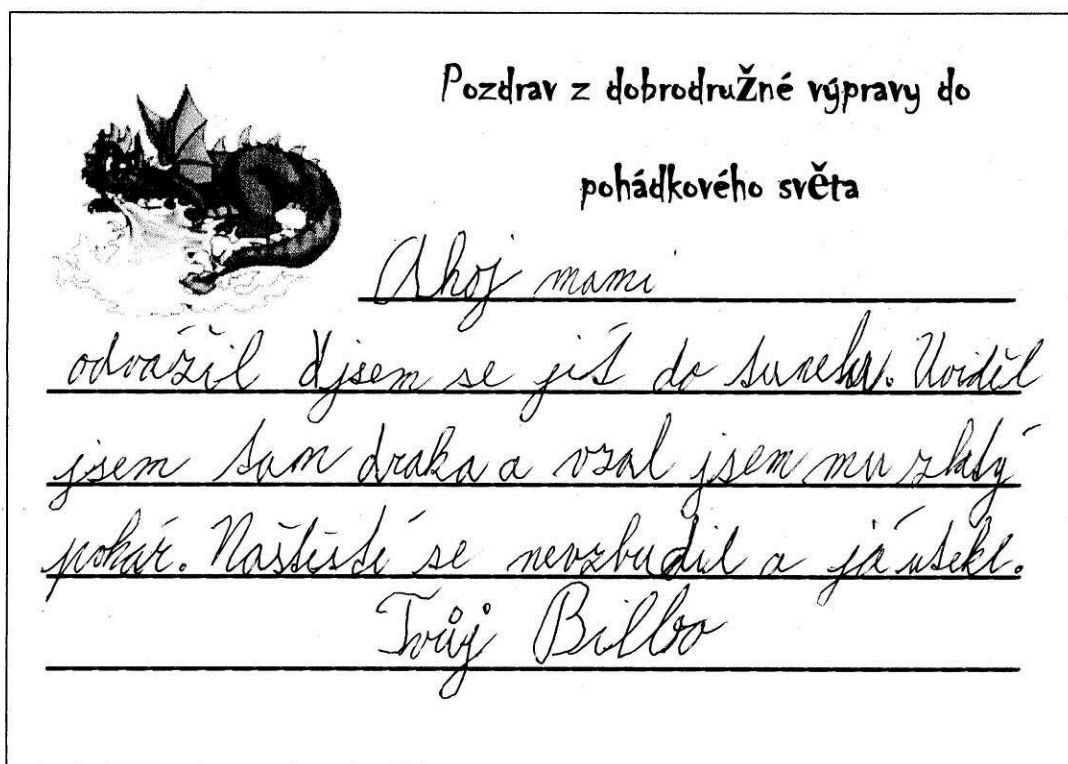 Pozdrav z dobrodružné výpravy do
pohádkového světa
Ahoj mami
odvážil jsem se jít do tunelu. Uviděl
jsem tam draka a vzal jsem mu zlatý
pohár. Naštěstí se nevzbudil a já utekl.
Tvůj Bilbo